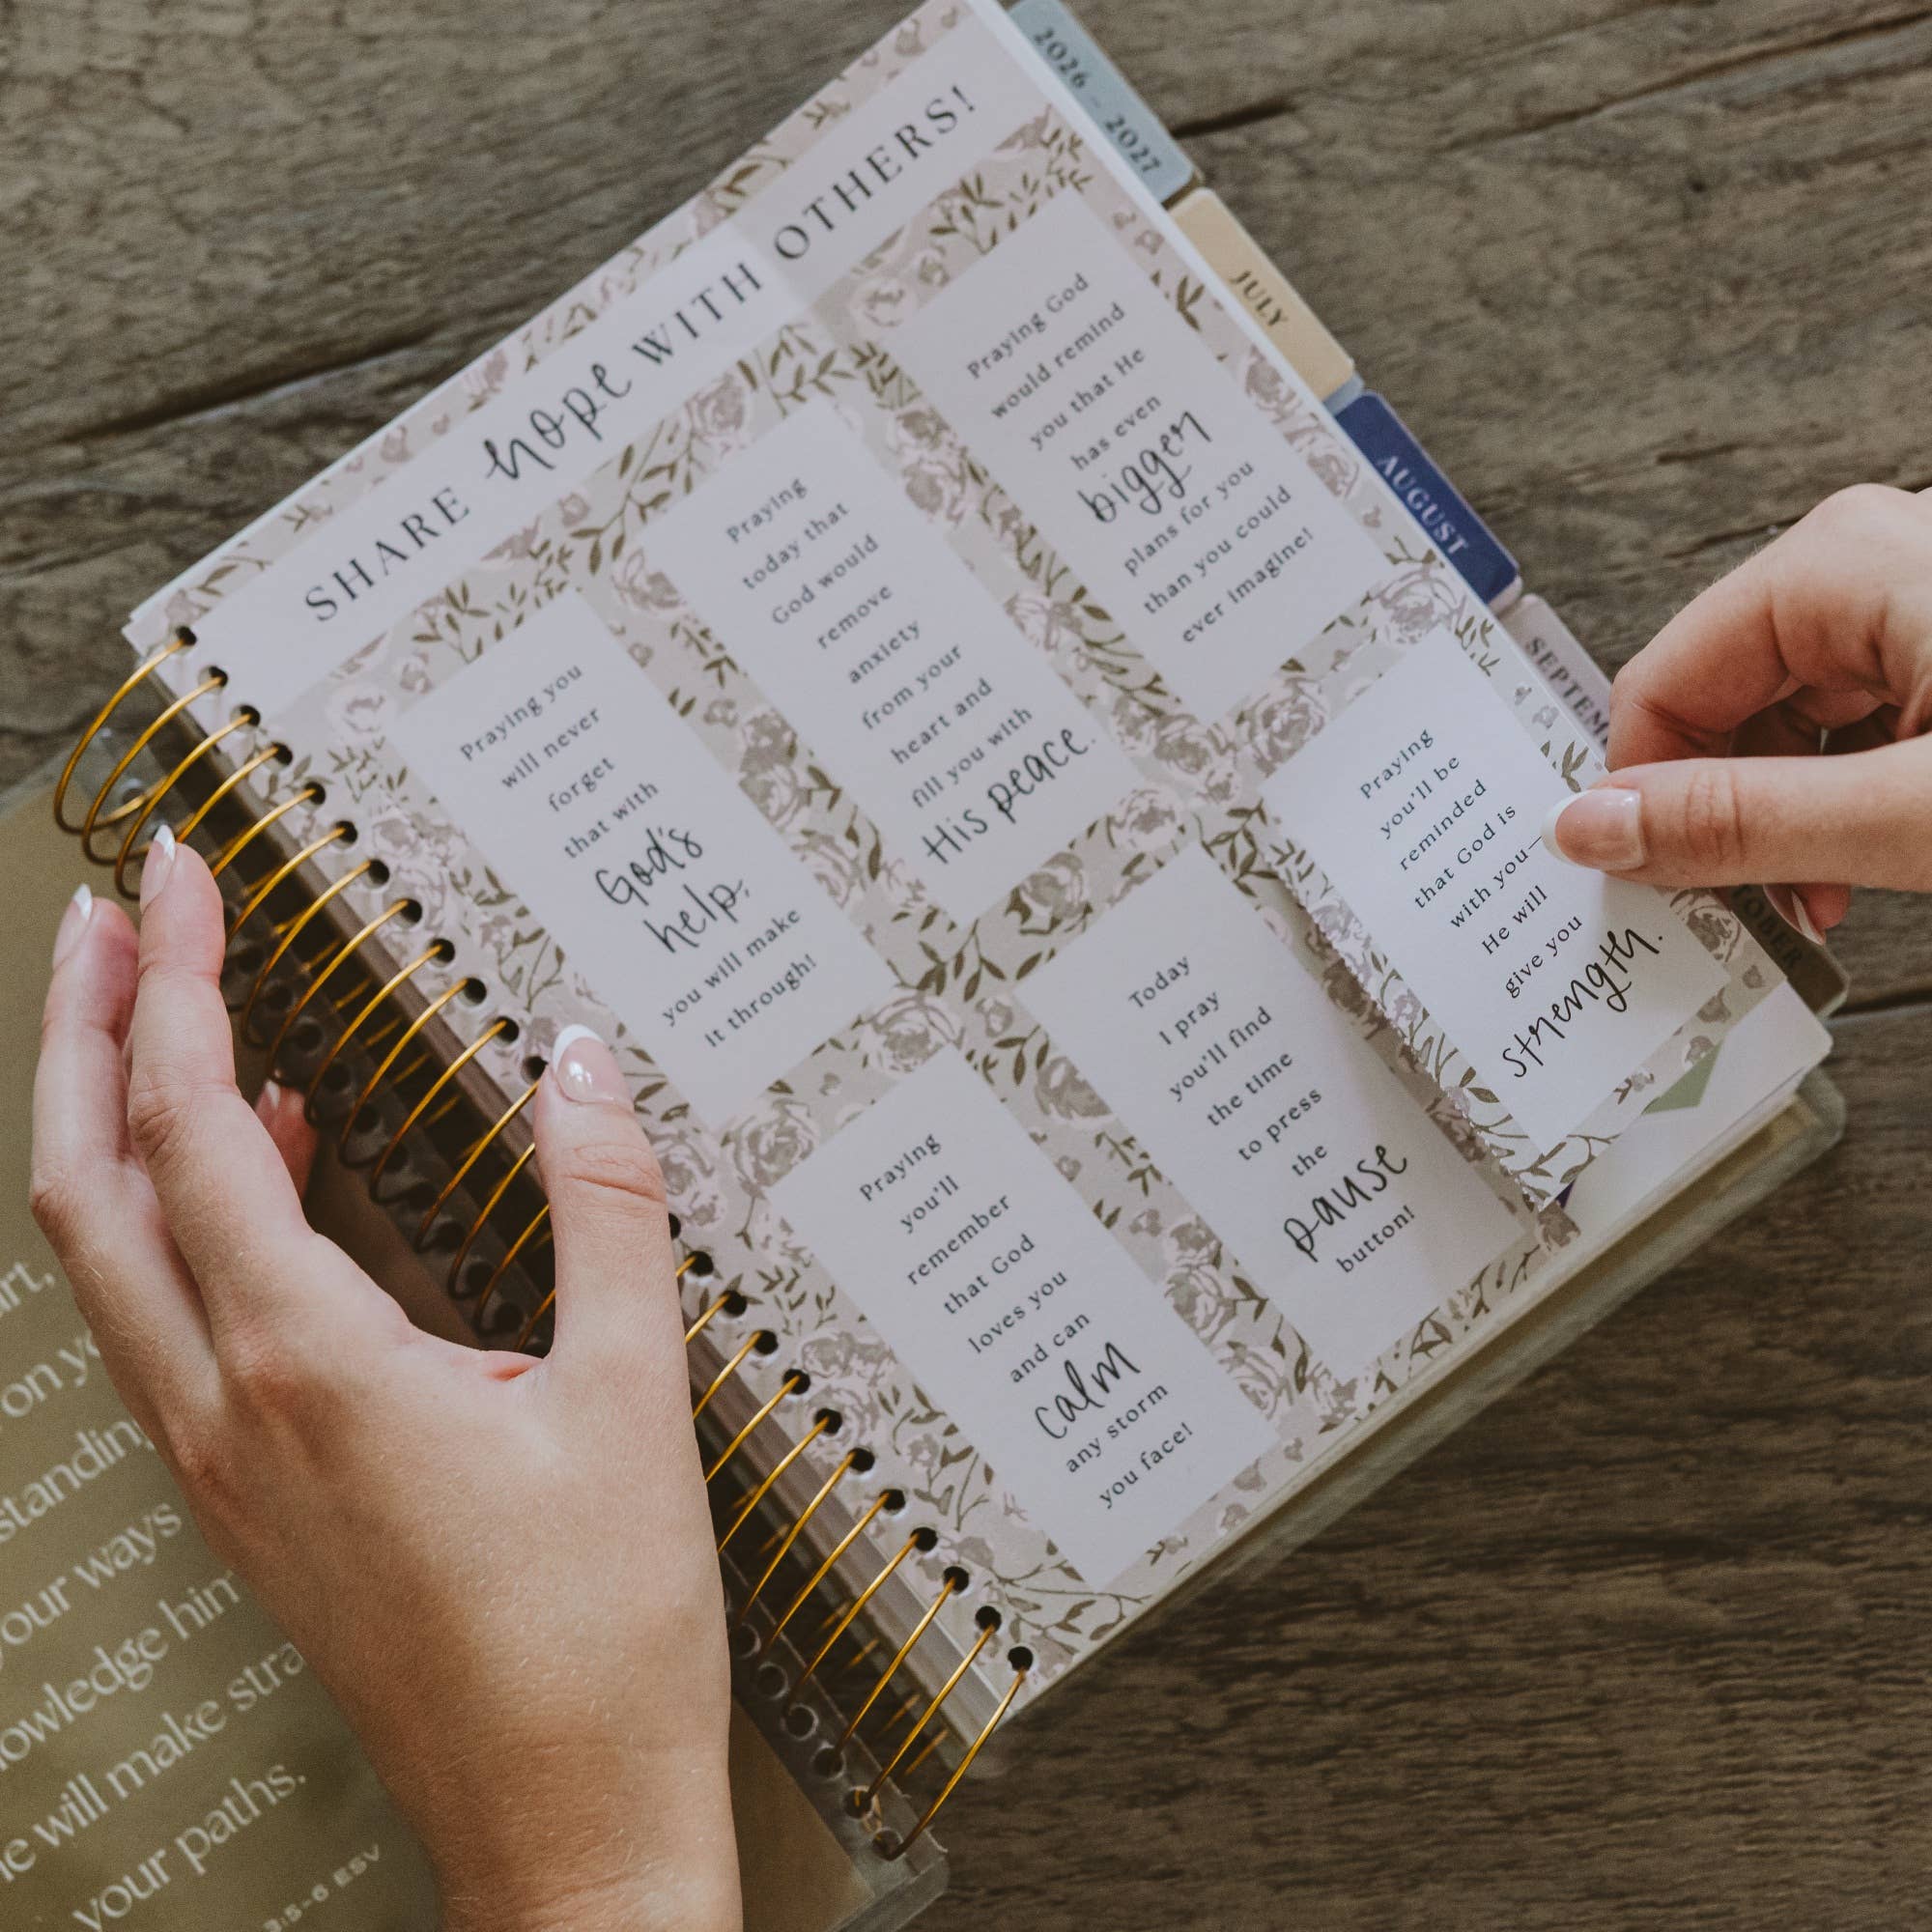 SHARE hope WITH OTHERS!
Praying you
will never
forget
that with
God's
help,
you will make
it through!
Praying
today that
God would
remove
anxiety
from your
heart and
fill you with
His peace.
Praying God
would remind
you that He
has even
bigger
plans for you
than you could
ever imagine!
Praying
you'll
remember
that God
loves you
and can
calm
any storm
you face!
Today
I pray
you'll find
the time
to press
the
pause
button!
Praying
you'll be
reminded
that God is
with you—
He will
give you
strength.
2026 - 2027
JULY
AUGUST
SEPTEM
TOBER
on
your ways
will make
your paths.
3:5-6 ESV